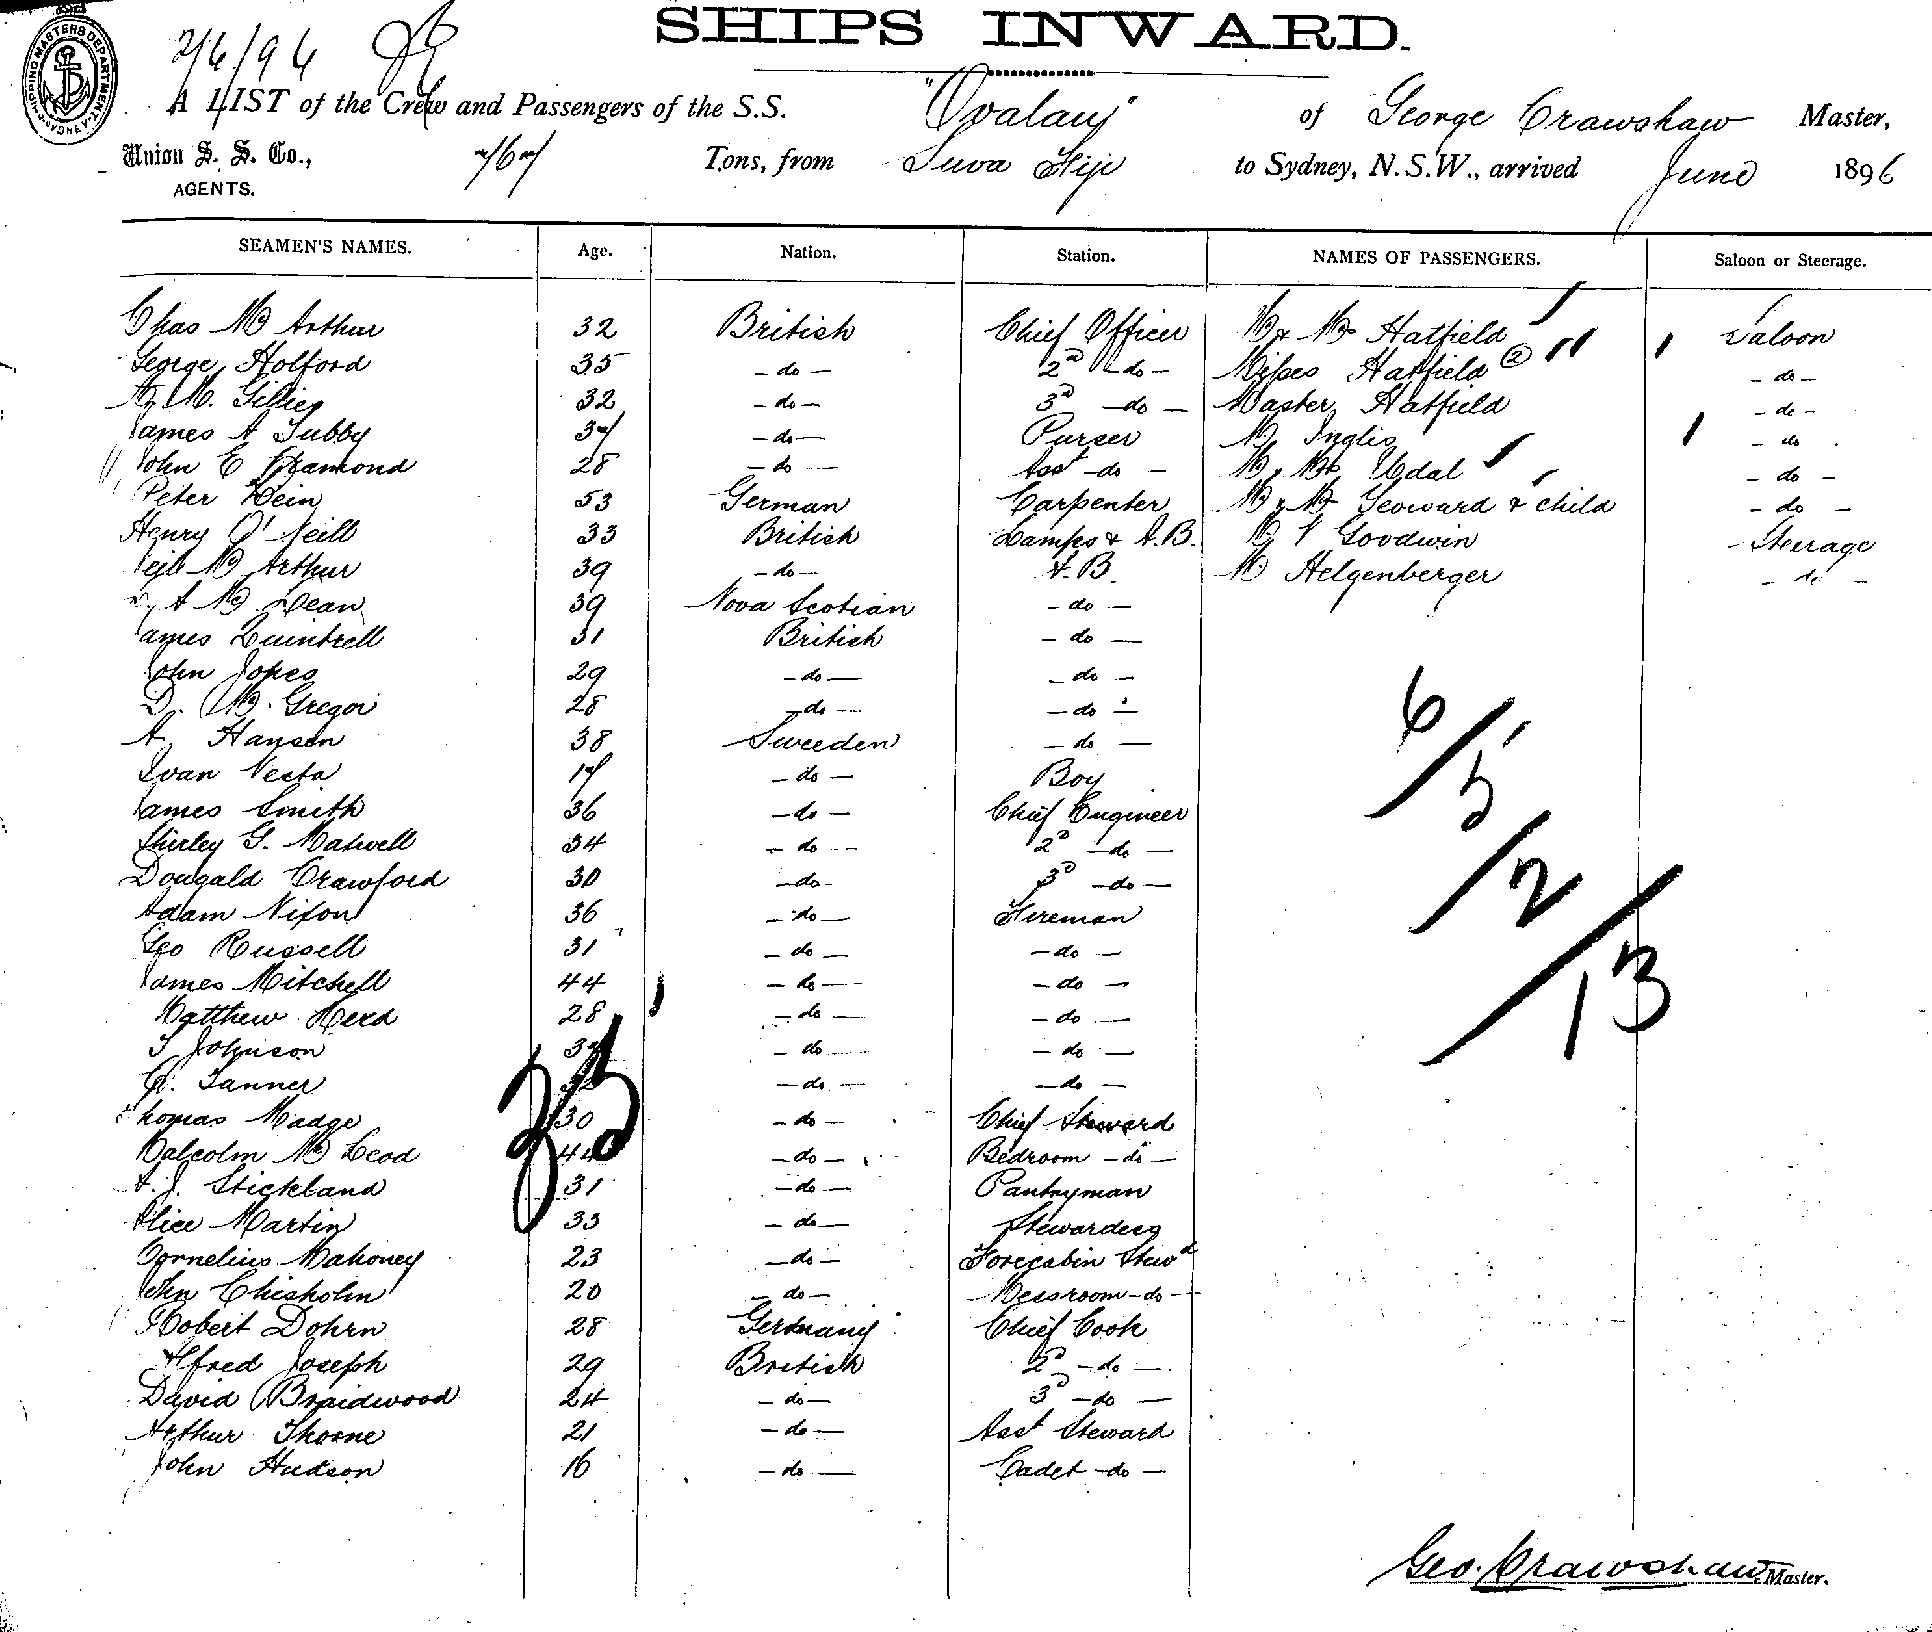 SHIPS INWARD.
SHIPPING MASTERS DEPARTMENT
2/6/96
A LIST of the Crew and Passengers of the S.S. "Ovalau" of George Crawshaw Master,
Union S. S. Co., AGENTS. 767 Tons, from Suva Fiji to Sydney, N.S.W., arrived June 1896
SEAMEN'S NAMES. Age. Nation. Station. NAMES OF PASSENGERS. Saloon or Steerage.
Chas Mc Arthur 32 British Chief Officer Mr & Mrs Hatfield Saloon
George Holford 35 - do - 2nd - do - Misses Hatfield (2) - do -
A. M. Gillies 32 - do - 3rd - do - Master Hatfield - do -
James A Tubby 37 - do - Purser Mr Inglis - do
John E Bramond 28 - do - Asst - do - Mr & Mrs Udal - do -
Peter Hein 53 German Carpenter Mr & Mrs Geoward & child - do -
Henry O'Neill 33 British Lamps & A.B. Goodwin Steerage
Neil Mc Arthur 39 - do - A.B. M Helgenberger - do -
A Mc Lean 39 Nova Scotian - do -
James Quintrell 31 British - do -
John Jones 29 - do - - do -
D. Mc Gregor 28 - do - - do -
A. Hansen 38 Sweeden - do -
Ivan Nesta 17 - do - Boy
James Smith 36 - do - Chief Engineer
Shirley G. Maxwell 34 - do - 2nd - do -
Dougald Crawford 30 - do - 3rd - do -
Adam Nixon 36 - do - Fireman
Geo Russell 31 - do - - do -
James Mitchell 44 - do - - do -
Matthew Herd 28 - do - - do -
T Johnson - do - - do -
G. Tanner - do - - do -
Thomas Madge 30 - do - Chief Steward
Malcolm Mc Leod 44 - do - Bedroom - do -
A. J. Stickland 31 - do - Pantryman
Alice Martin 33 - do - Stewardess
Cornelius Mahoney 23 - do - Forecabin Stewd
John Chisholm 20 - do - Messroom - do -
Robert Dohrn 28 Germany Chief Cook
Alfred Joseph 29 British 2nd - do -
David Braidwood 24 - do - 3rd - do -
Arthur Thorne 21 - do - Asst Steward
John Hudson 16 - do - Cadet - do -
6/5/2/13
35
Geo. Crawshaw Master.